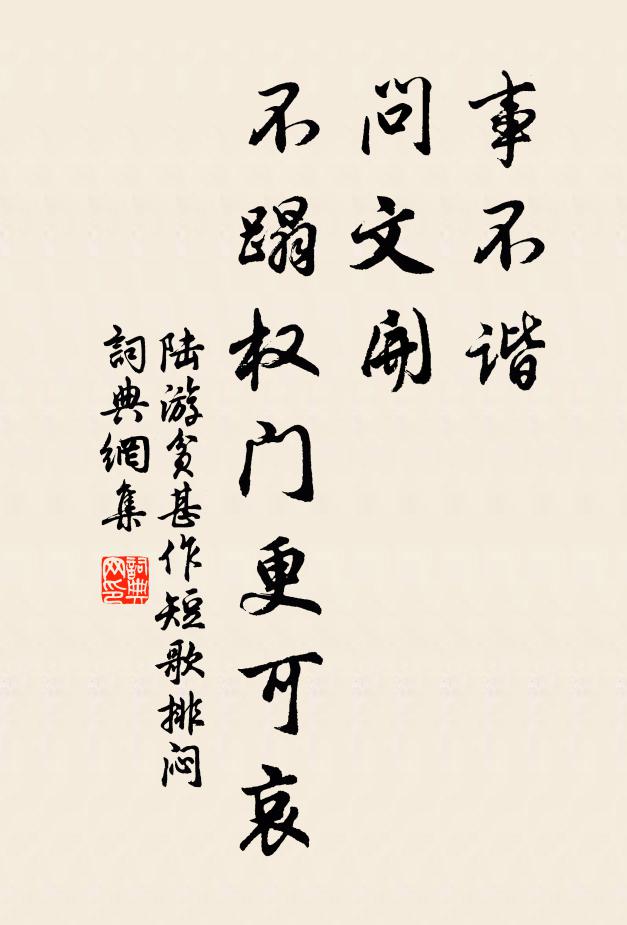 事不谐
问文开
不蹋权门更可哀
陆游贫甚作短歌排闷
詞典網集
詞典网印